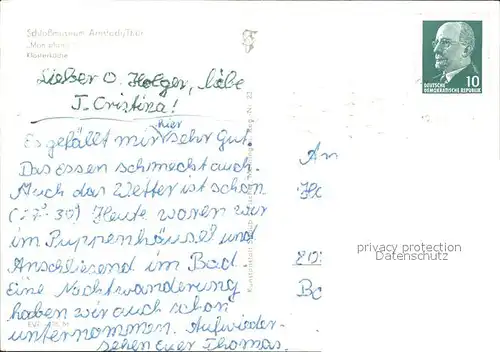 Schloßmuseum Arnstadt/Thür.
„Mon plaisir"
Klosterküche
Lieber O. Holger, liebe
T. Cristina!
Es gefällt mir hier sehr gut.
Das Essen schmeckt auch.
Auch das Wetter ist schön
(27°-30) Heute waren wir
im Puppenhäusel und
Anschliesend im Bad.
Eine Nachtwanderung
haben wir auch schon
unternommen. Aufwieder-
sehen euer Thomas.
10
DEUTSCHE
DEMOKRATISCHE REPUBLIK
An
privacy protection
Datenschutz